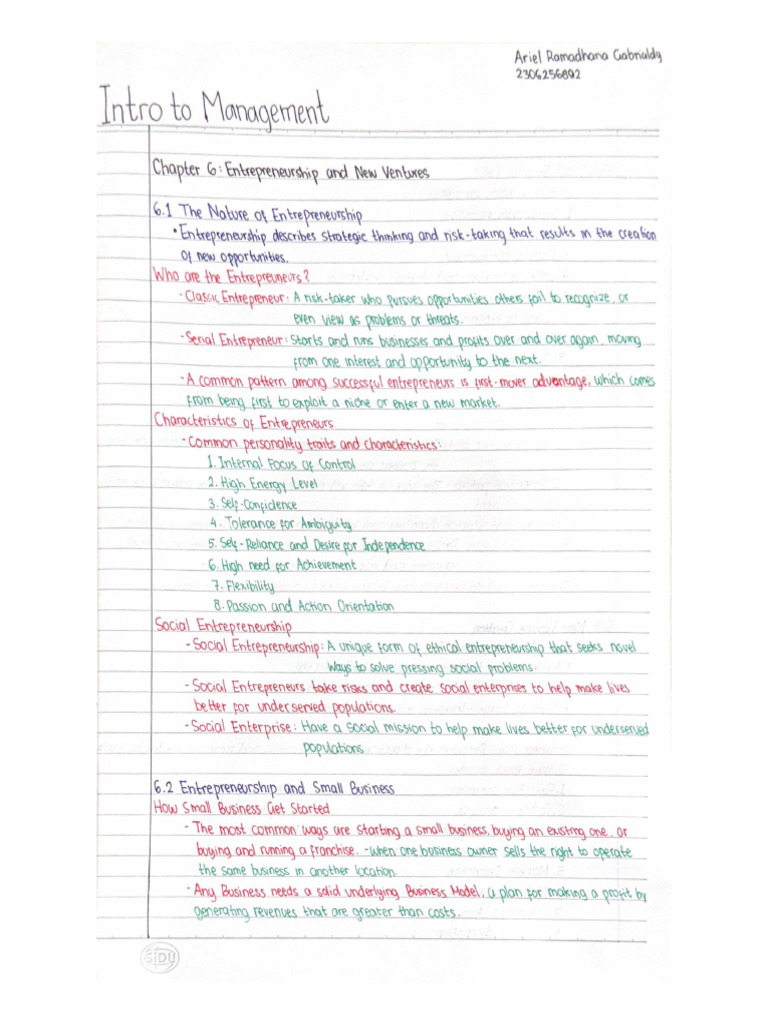 Ariel Ramadhana Gabrialdy
2306256802
Intro to Management
Chapter 6: Entrepreneurship and New Ventures
6.1 The Nature of Entrepreneurship
• Entrepreneurship describes strategic thinking and risk-taking that results in the creation
of new opportunities.
Who are the Entrepreuneurs?
- Classic Entrepreneur: A risk-taker who pursues opportunities others fail to recognize, or
even view as problems or threats.
- Serial Entrepreneur: Starts and runs businesses and profits over and over again, moving
from one interest and opportunity to the next.
- A common pattern among successful entrepreneurs is first-mover advantage, which comes
from being first to exploit a niche or enter a new market.
Characteristics of Entrepreneurs
- Common personality traits and characteristics:
1. Internal Focus of Control
2. High Energy Level
3. Self-Confidence
4. Tolerance for Ambiguity
5. Self-Reliance and Desire for Independence
6. High need for Achievement
7. Flexibility
8. Passion and Action Orientation
Social Entrepreneurship
- Social Entrepreneurship: A unique form of ethical entrepreneurship that seeks novel
ways to solve pressing social problems.
- Social Entrepreneurs take risks and create social enterprises to help make lives
better for underserved populations.
- Social Enterprise: Have a social mission to help make lives better for underserved
populations
6.2 Entrepreneurship and Small Business
How Small Business Get Started
- The most common ways are starting a small business, buying an existing one, or
buying and running a franchise. - when one business owner sells the right to operate
the same business in another location.
- Any Business needs a solid underlying Business Model, a plan for making a profit by
generating revenues that are greater than costs.
SIDU